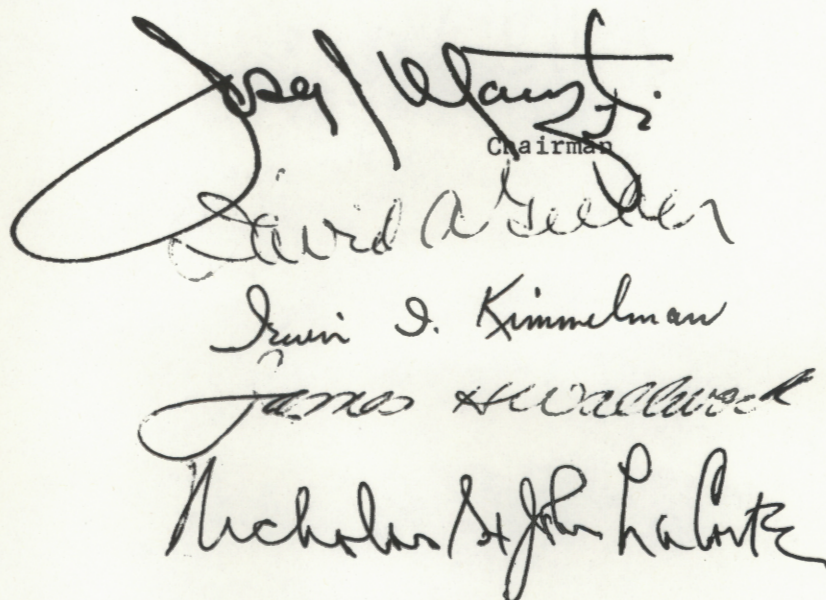 Joseph J Maraziti
Chairman
David A Gelber
Irwin I. Kimmelman
James H Wallwork
Nicholas St John LaCorte